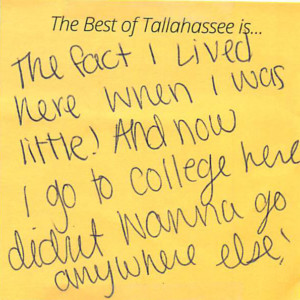 The Best of Tallahassee is...
The fact I lived
here when I was
little! And now
I go to college here
didn't wanna go
anywhere else!